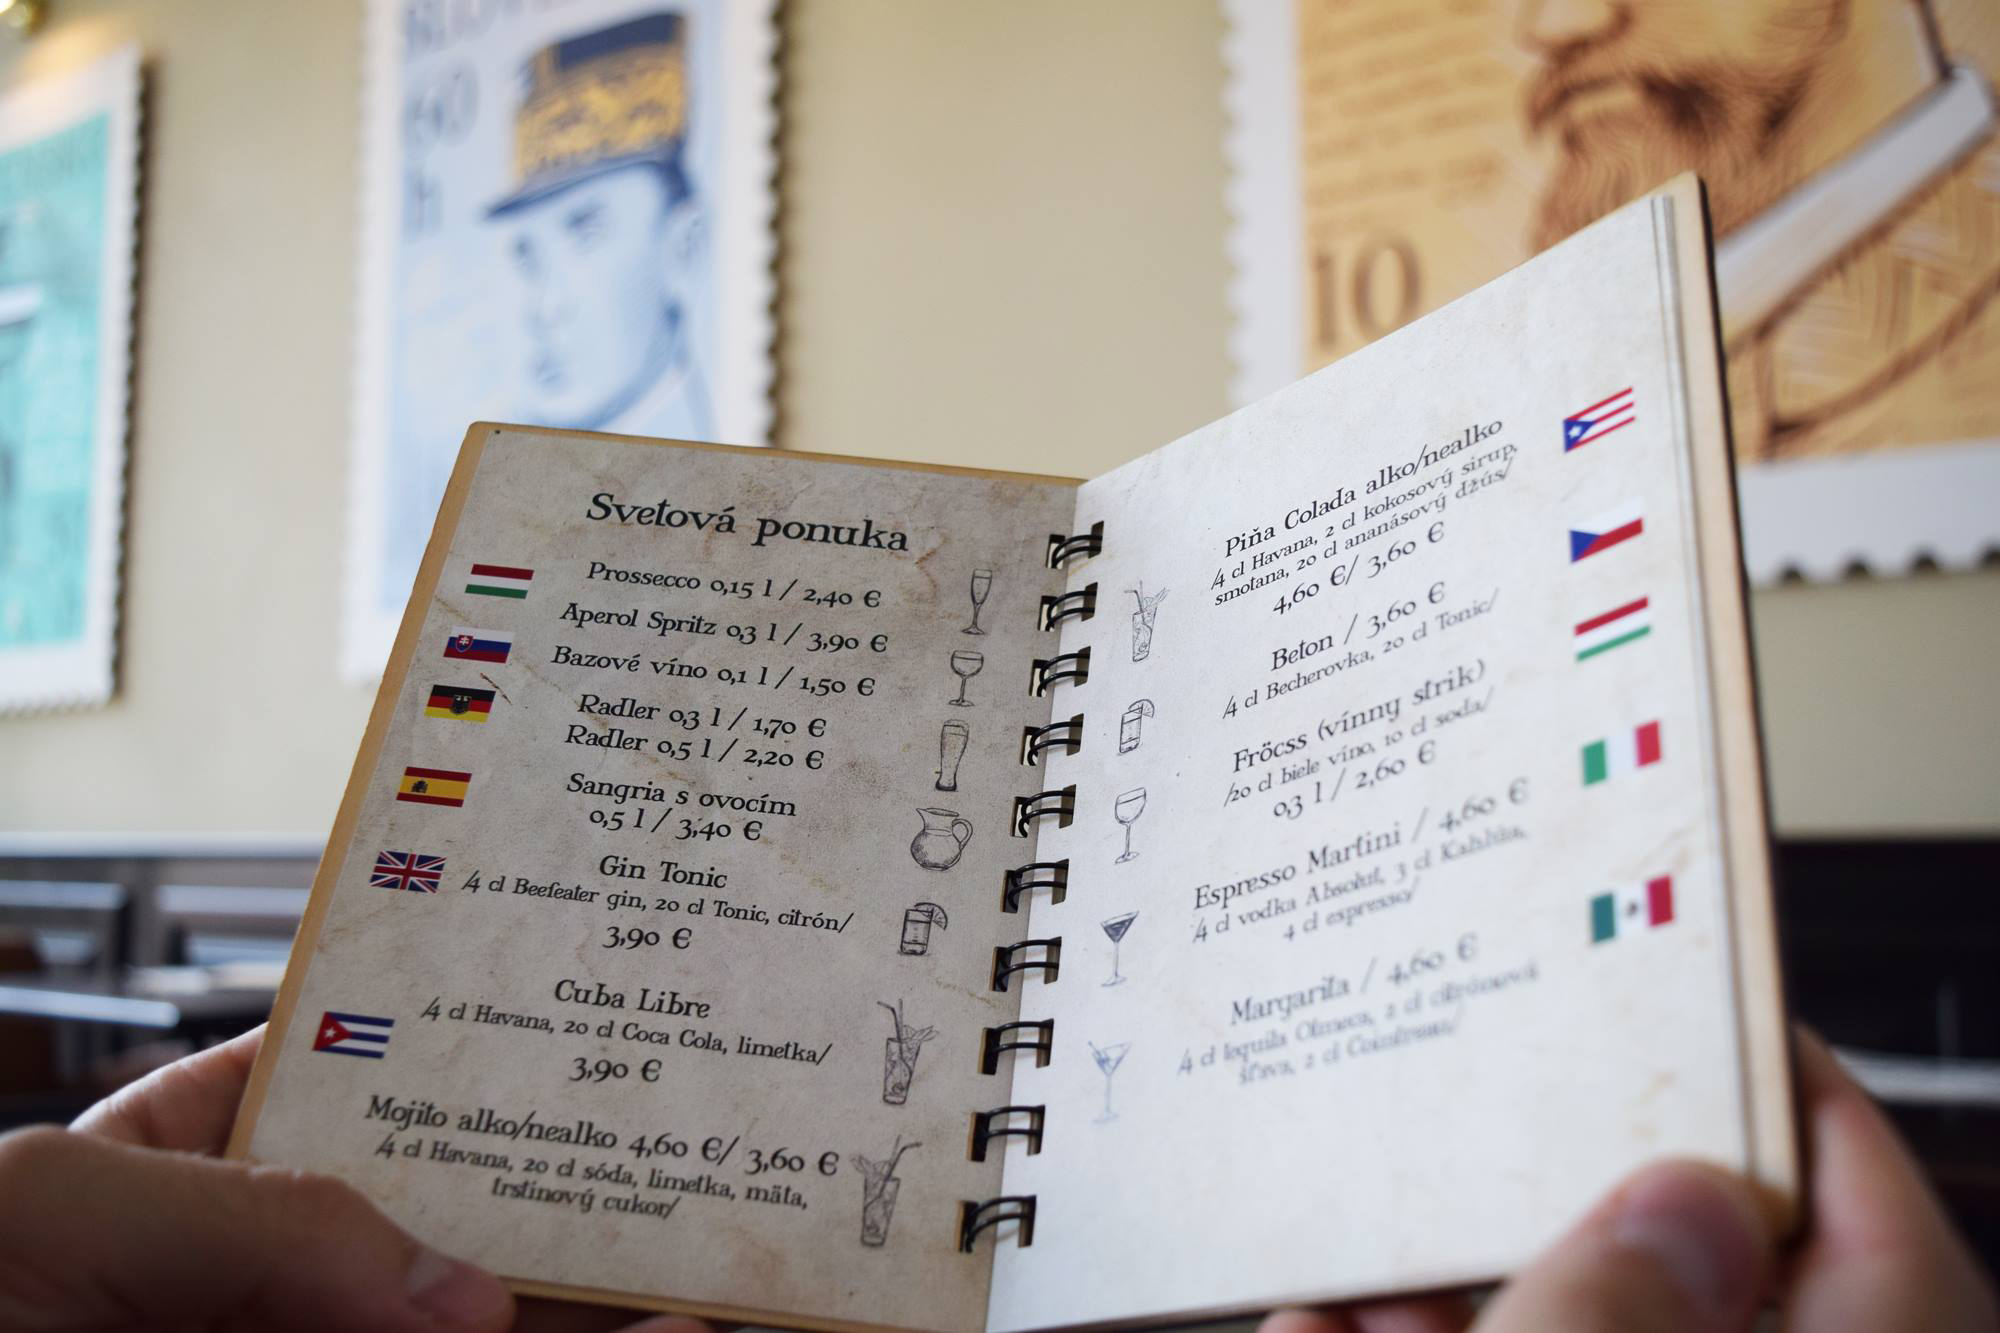 60
h
10
Svetová ponuka
Prossecco 0,15 l / 2,40 €
Aperol Spritz 0,3 l / 3,90 €
Bazové víno 0,1 l / 1,50 €
Radler 0,3 l / 1,70 €
Radler 0,5 l / 2,20 €
Sangria s ovocím
0,5 l / 3,40 €
Gin Tonic
/4 cl Beefeater gin, 20 cl Tonic, citrón/
3,90 €
Cuba Libre
/4 cl Havana, 20 cl Coca Cola, limetka/
3,90 €
Mojito alko/nealko 4,60 €/ 3,60 €
/4 cl Havana, 20 cl sóda, limetka, mäta,
trstinový cukor/
Piňa Colada alko/nealko
/4 cl Havana, 2 cl kokosový sirup,
smotana, 20 cl ananásový džús/
4,60 €/ 3,60 €
Beton / 3,60 €
/4 cl Becherovka, 20 cl Tonic/
Fröcss (vínny strik)
/20 cl biele víno, 10 cl soda/
0,3 l / 2,60 €
Espresso Martini / 4,60 €
/4 cl vodka Absolut, 3 cl Kahlúa,
4 cl espresso/
Margarita / 4,60 €
/4 cl tequila Olmeca, 2 cl citrónová
šťava, 2 cl Cointreau/